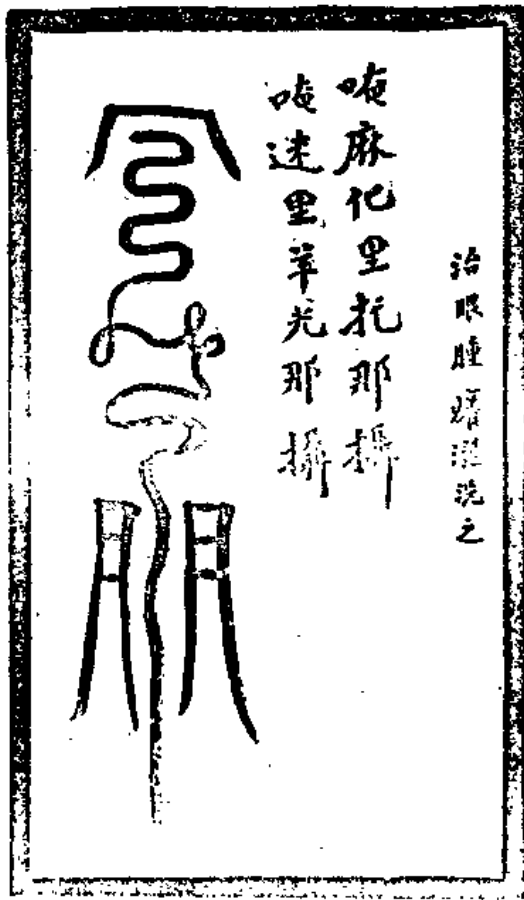 治眼腫噴灑洗之
唵麻化里托那攝
唵迷里羊光那攝